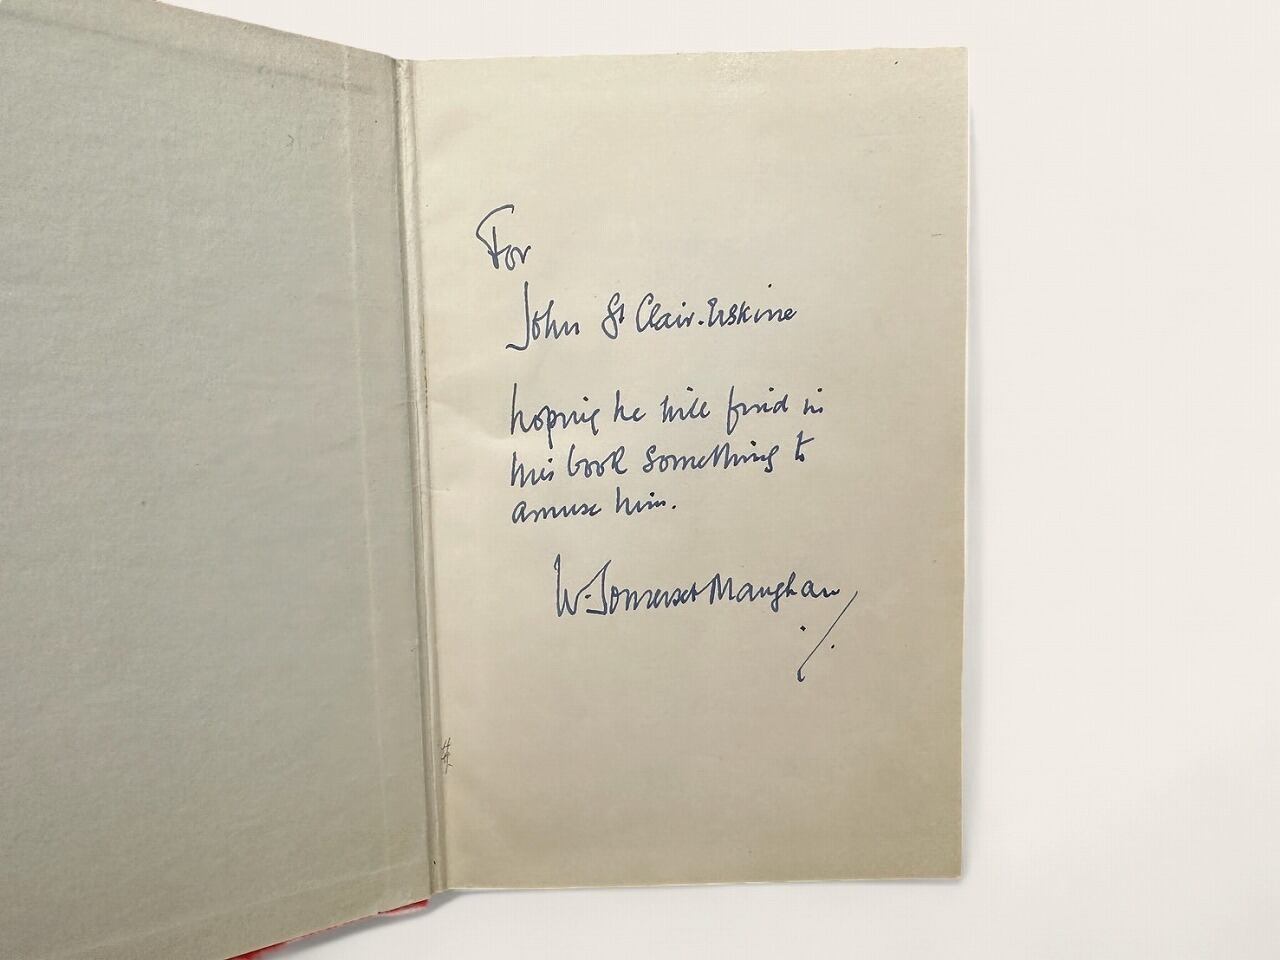 For
John St Clair-Erskine
hoping he will find in
this book something to
amuse him.
W. Somerset Maugham